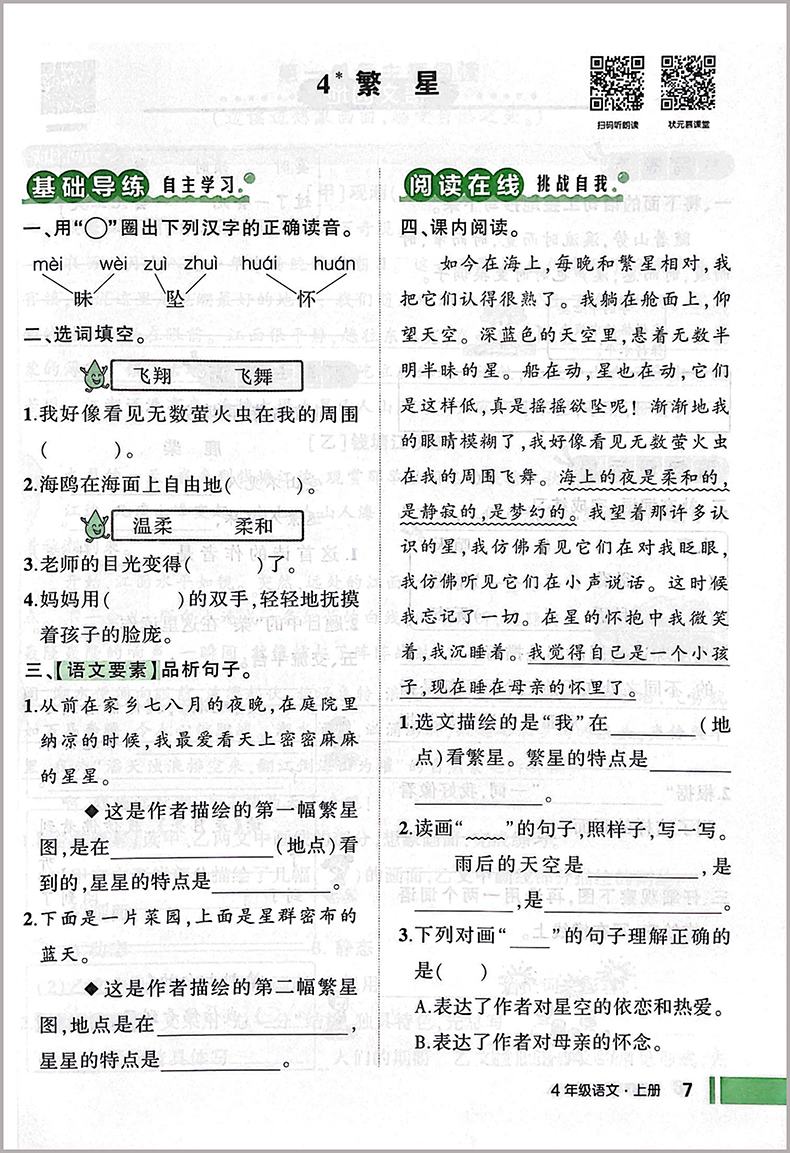 4* 繁 星
扫码听朗读
状元慕课堂
基础导练 自主学习
一、用“○”圈出下列汉字的正确读音。
mèi wèi zuì zhuì huái huán
昧 坠 怀
二、选词填空。
飞翔 飞舞
1.我好像看见无数萤火虫在我的周围
( )。
2.海鸥在海面上自由地( )。
温柔 柔和
3.老师的目光变得( )。
4.妈妈用( )的双手,轻轻地抚摸
着孩子的脸庞。
三、【语文要素】品析句子。
1.从前在家乡七八月的夜晚,在庭院里
纳凉的时候,我最爱看天上密密麻麻
的星星。
◆这是作者描绘的第一幅繁星
图,是在____________(地点)看
到的,星星的特点是________。
2.下面是一片菜园,上面是星群密布的
蓝天。
◆这是作者描绘的第二幅繁星
图,地点是在____________,
星星的特点是____________。
阅读在线 挑战自我
四、课内阅读。
如今在海上,每晚和繁星相对,我
把它们认得很熟了。我躺在舱面上,仰
望天空。深蓝色的天空里,悬着无数半
明半昧的星。船在动,星也在动,它们
是这样低,真是摇摇欲坠呢!渐渐地我
的眼睛模糊了,我好像看见无数萤火虫
在我的周围飞舞。海上的夜是柔和的,
是静寂的,是梦幻的。我望着那许多认
识的星,我仿佛看见它们在对我眨眼,
我仿佛听见它们在小声说话。这时候
我忘记了一切。在星的怀抱中我微笑
着,我沉睡着。我觉得自己是一个小孩
子,现在睡在母亲的怀里了。
1.选文描绘的是“我”在________(地
点)看繁星。繁星的特点是________
____________。
2.读画“﹏﹏”的句子,照样子,写一写。
雨后的天空是________,是
________,是____________。
3.下列对画“____”的句子理解正确的
是( )
A.表达了作者对星空的依恋和热爱。
B.表达了作者对母亲的怀念。
4年级语文·上册 7